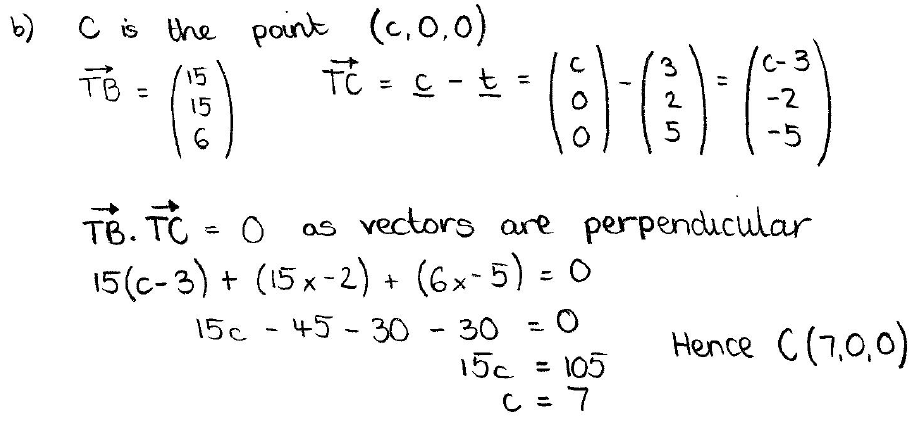 b) C is the point (c,0,0)
TB⃗ = (15 15 6) TC⃗ = c - t = (c 0 0) - (3 2 5) = (c-3 -2 -5)
TB⃗ . TC⃗ = 0 as vectors are perpendicular
15(c-3) + (15x-2) + (6x-5) = 0
15c - 45 - 30 - 30 = 0
15c = 105 Hence C(7,0,0)
c = 7